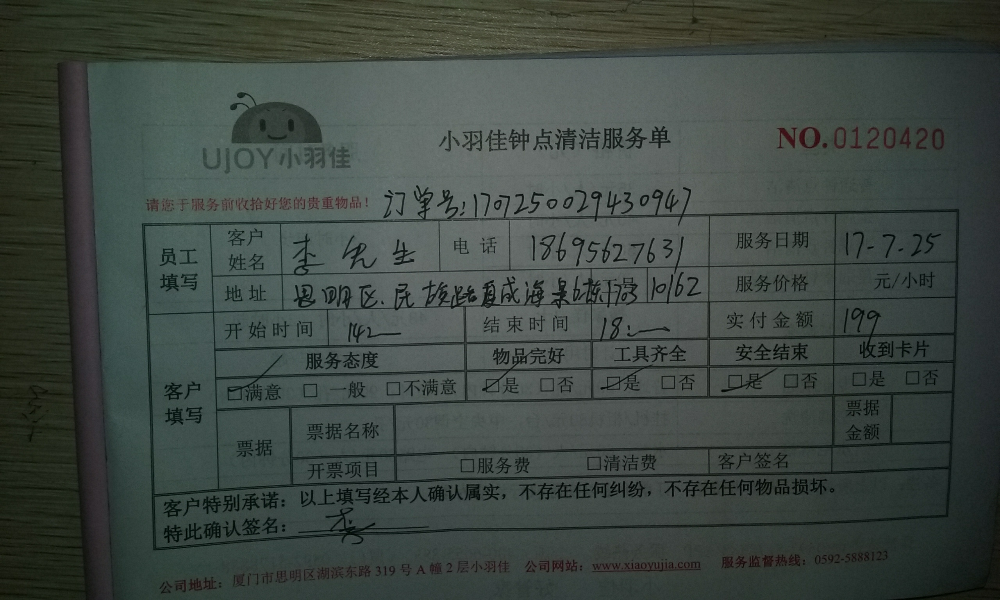 UJOY小羽佳
小羽佳钟点清洁服务单
NO.0120420
请您于服务前收拾好您的贵重物品！ 订单号:1707250029430947
员工填写 客户姓名 李先生 电话 18695627631 服务日期 17-7-25
地址 思明区.民族路夏成海景 1703 10162 服务价格 元/小时
客户填写 开始时间 14 结束时间 18: 实付金额 199
服务态度 物品完好 工具齐全 安全结束 收到卡片
☑满意 □ 一般 □不满意 ☑是 □否 ☑是 □否 ☑是 □否 □是 □否
票据 票据名称 票据金额
开票项目 □服务费 □清洁费 客户签名
客户特别承诺：以上填写经本人确认属实，不存在任何纠纷，不存在任何物品损坏。
特此确认签名：李
公司地址：厦门市思明区湖滨东路 319 号 A 幢 2 层小羽佳 公司网站：www.xiaoyujia.com 服务监督热线：0592-5888123